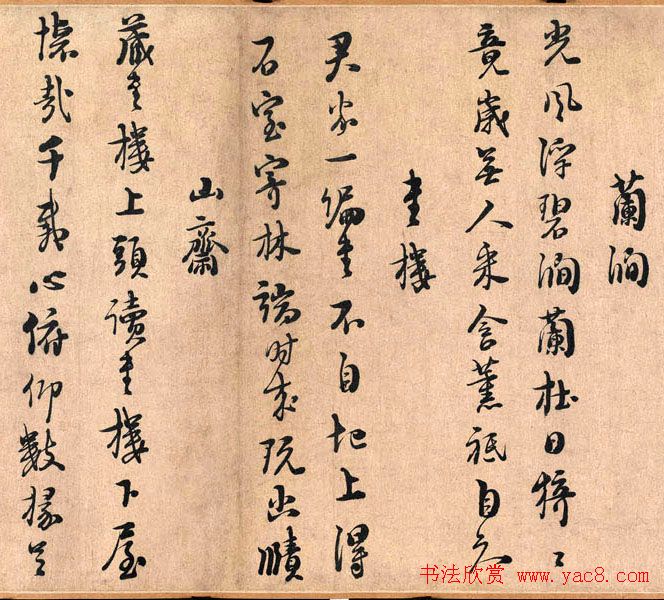 蘭澗
光風浮碧澗蘭杜日猗〻
竟歲無人采含薰祗自知
書樓
君家一編書不自圯上得
石室寄林端時來玩幽賾
山齋
藏書樓上頭讀書樓下屋
懷哉千載心俯仰數椽足
书法欣赏 www.yac8.com